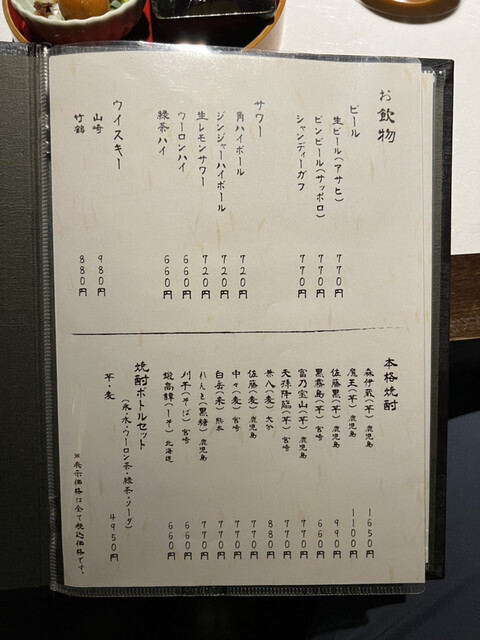 お飲物
ビール
生ビール(アサヒ) 770円
ビンビール(サッポロ) 770円
シャンディーガフ 770円
サワー
角ハイボール 720円
ジンジャーハイボール 720円
生レモンサワー 720円
ウーロンハイ 660円
緑茶ハイ 660円
ウイスキー
山崎 980円
竹鶴 880円
本格焼酎
森伊蔵(芋)鹿児島 1650円
魔王(芋)鹿児島 1100円
佐藤黒(芋)鹿児島 990円
黒霧島(芋)宮崎 660円
富乃宝山(芋)鹿児島 770円
天孫降臨(芋)宮崎 770円
兼八(麦)大分 880円
佐藤(麦)鹿児島 770円
中々(麦)宮崎 770円
白岳(米)熊本 770円
れんと(黒糖)鹿児島 770円
刈干(そば)宮崎 660円
鍛高譚(しそ)北海道 660円
焼酎ボトルセット
(氷・水・ウーロン茶・緑茶・ソーダ)
芋・麦 4950円
※表示価格は全て税込価格です。